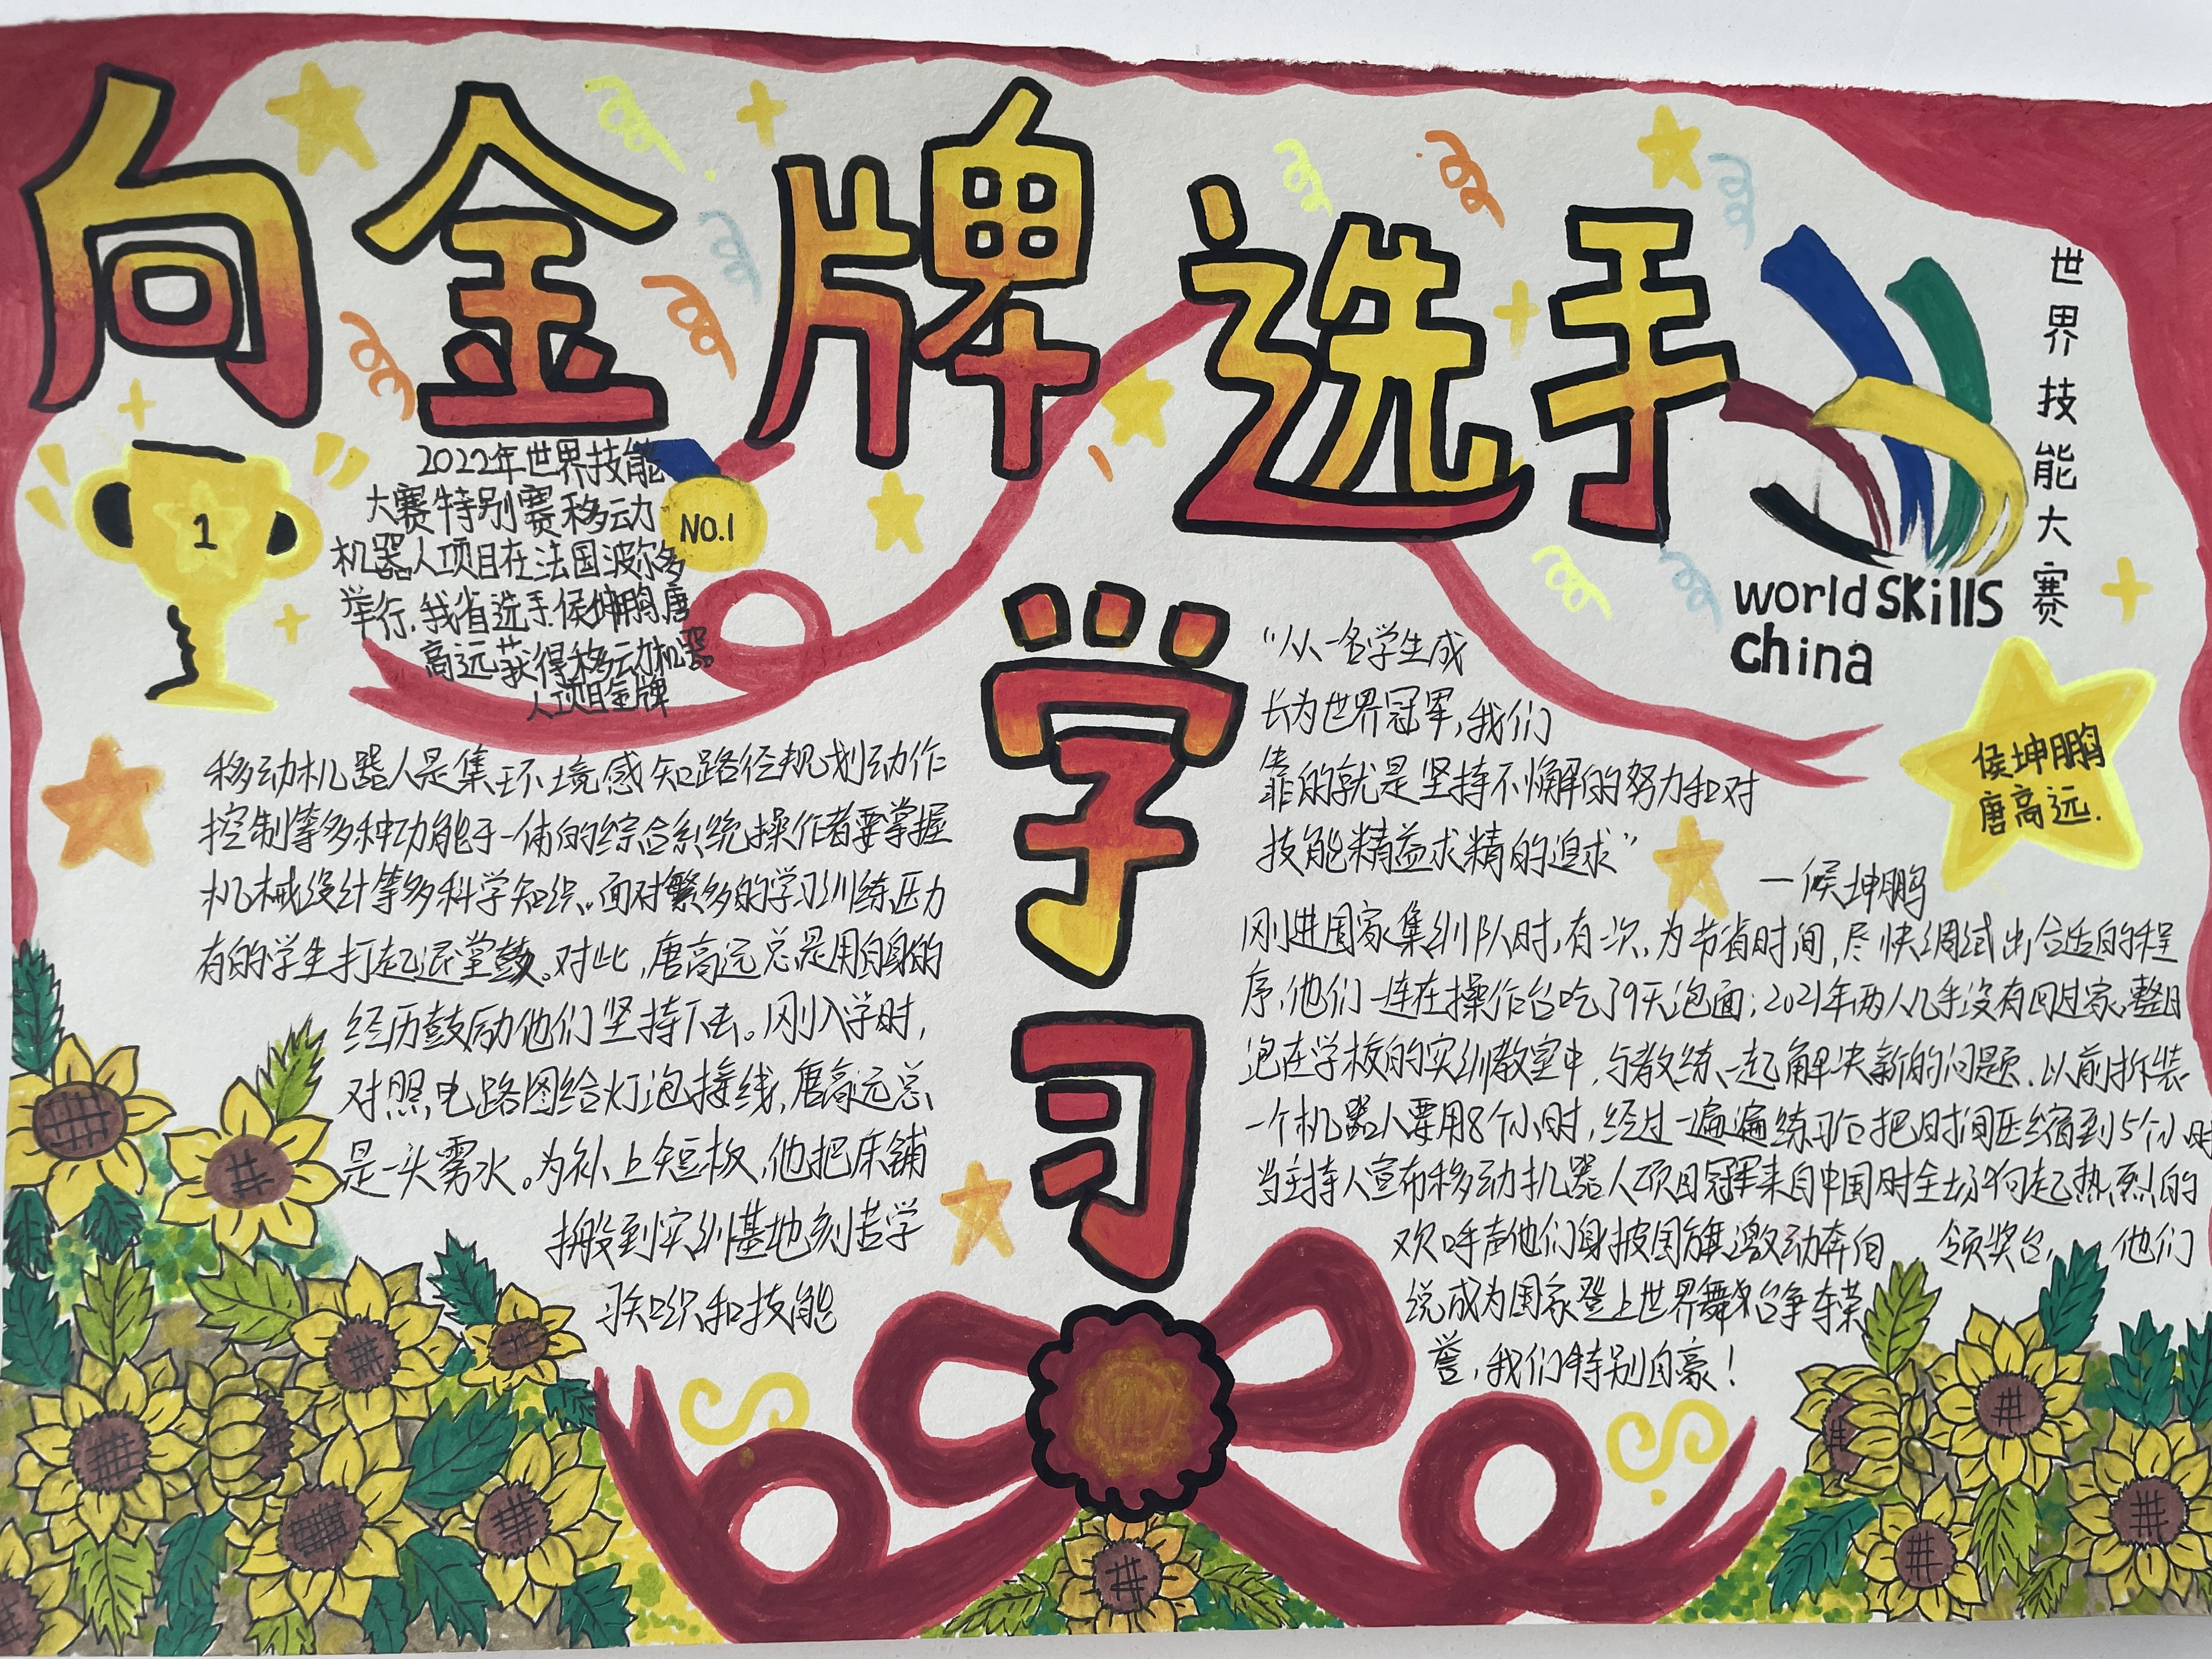 向金牌选手
学习
世界技能大赛
world skills
china
1
NO.1
2022年世界技能
大赛特别赛移动
机器人项目在法国波尔多
举行,我省选手侯坤鹏,唐
高远获得移动机器
人项目金牌
移动机器人是集环境感知路径规划动作
控制等多种功能于一体的综合系统,操作者要掌握
机械设计等多科学知识。面对繁多的学习训练压力
有的学生打起退堂鼓。对此,唐高远总是用自身的
经历鼓励他们坚持下去。刚入学时,
对照电路图给灯泡接线,唐高远总
是一头雾水。为补上短板,他把床铺
搬到实训基地刻苦学
习知识和技能
“从一名学生成
长为世界冠军,我们
靠的就是坚持不懈的努力和对
技能精益求精的追求”
—候坤鹏
侯坤鹏
唐高远.
刚进国家集训队时,有一次,为节省时间,尽快调试出合适的程
序,他们一连在操作台吃了9天泡面;2021年两人几乎没有回过家,整日
泡在学校的实训教室中,与教练一起解决新的问题.以前拆装
一个机器人要用8个小时,经过一遍遍练习后把时间压缩到5个小时
当主持人宣布移动机器人项目冠军来自中国时全场响起热烈的
欢呼声他们身披国旗激动奔向 领奖台, 他们
说成为国家登上世界舞台争夺荣
誉,我们特别自豪!